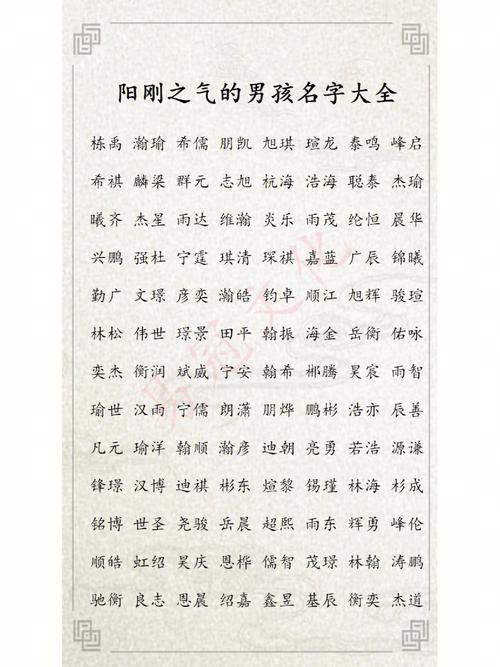 阳刚之气的男孩名字大全
栋禹 瀚瑜 希儒 朋凯 旭琪 瑄龙 泰鸣 峰启
希祺 麟梁 群元 志旭 杭海 浩海 聪泰 杰瑜
曦齐 杰星 雨达 维瀚 炎乐 雨茂 纶恒 晨华
兴鹏 强杜 宁霆 琪清 琛祺 嘉蓝 广辰 锦曦
勤广 文璟 彦奕 瀚皓 钧卓 顺江 旭辉 骏瑄
林松 伟世 璟景 田平 翰振 海金 岳衡 佑咏
奕杰 衡润 斌威 宁安 翰希 郴腾 昊宸 雨智
瑜世 汉雨 宁儒 朗潇 朋烨 鹏彬 浩亦 辰善
凡元 瑜洋 翰顺 瀚彦 迪朝 亮勇 若浩 源谦
锋璟 汉博 迪祺 彬东 煊黎 锡瑾 林海 杉成
铭博 世圣 尧骏 岳晨 超熙 雨东 辉勇 峰伦
顺皓 虹绍 昊庆 恩桦 儒智 茂璟 林翰 涛鹏
驰衡 良志 恩晨 绍嘉 鑫昱 基辰 衡奕 杰道
易冠文化